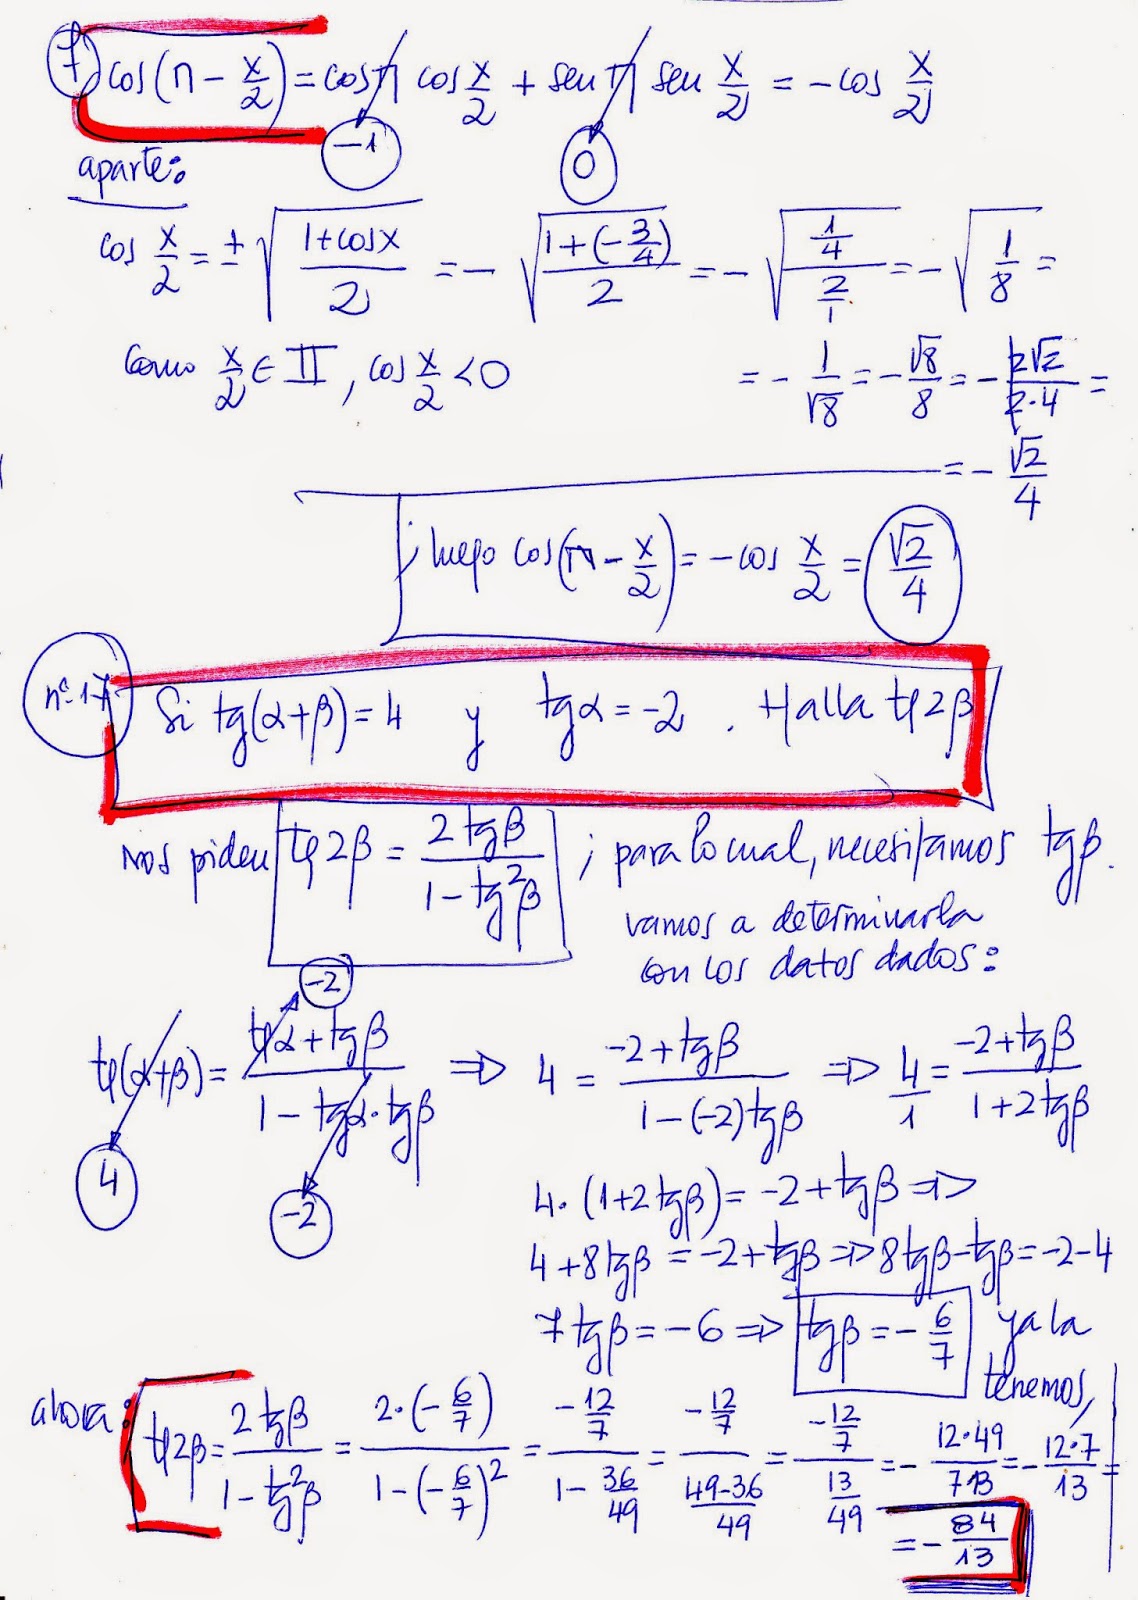 7) cos(π - x/2) = cosπ cos x/2 + senπ sen x/2 = -cos x/2
-1 0
aparte:
cos x/2 = ± √((1+cosx)/2) = - √((1+(-3/4))/2) = - √((1/4)/(2/1)) = - √(1/8) =
Como x/2 ∈ II, cos x/2 < 0
= - 1/√8 = - √8/8 = - 2√2/2·4 =
= - √2/4
; luego cos(π - x/2) = -cos x/2 = √2/4
nº 17
Si tg(α+β) = 4 y tgα = -2 . Halla tg2β
Nos piden tg2β = 2tgβ/(1-tg²β) ; para lo cual, necesitamos tgβ.
vamos a determinarla
con los datos dados:
-2
tg(α+β) = (tgα+tgβ)/(1-tgα·tgβ) => 4 = (-2+tgβ)/(1-(-2)tgβ) => 4/1 = (-2+tgβ)/(1+2tgβ)
4
-2
4·(1+2tgβ) = -2+tgβ =>
4+8tgβ = -2+tgβ => 8tgβ-tgβ = -2-4
7tgβ = -6 => tgβ = - 6/7 ya la
tenemos,
ahora:
tg2β = 2tgβ/(1-tg²β) = 2·(-6/7)/(1-(-6/7)²) = (-12/7)/(1-36/49) = (-12/7)/((49-36)/49) = (-12/7)/(13/49) = - 12·49/7·13 = - 12·7/13 =
= - 84/13